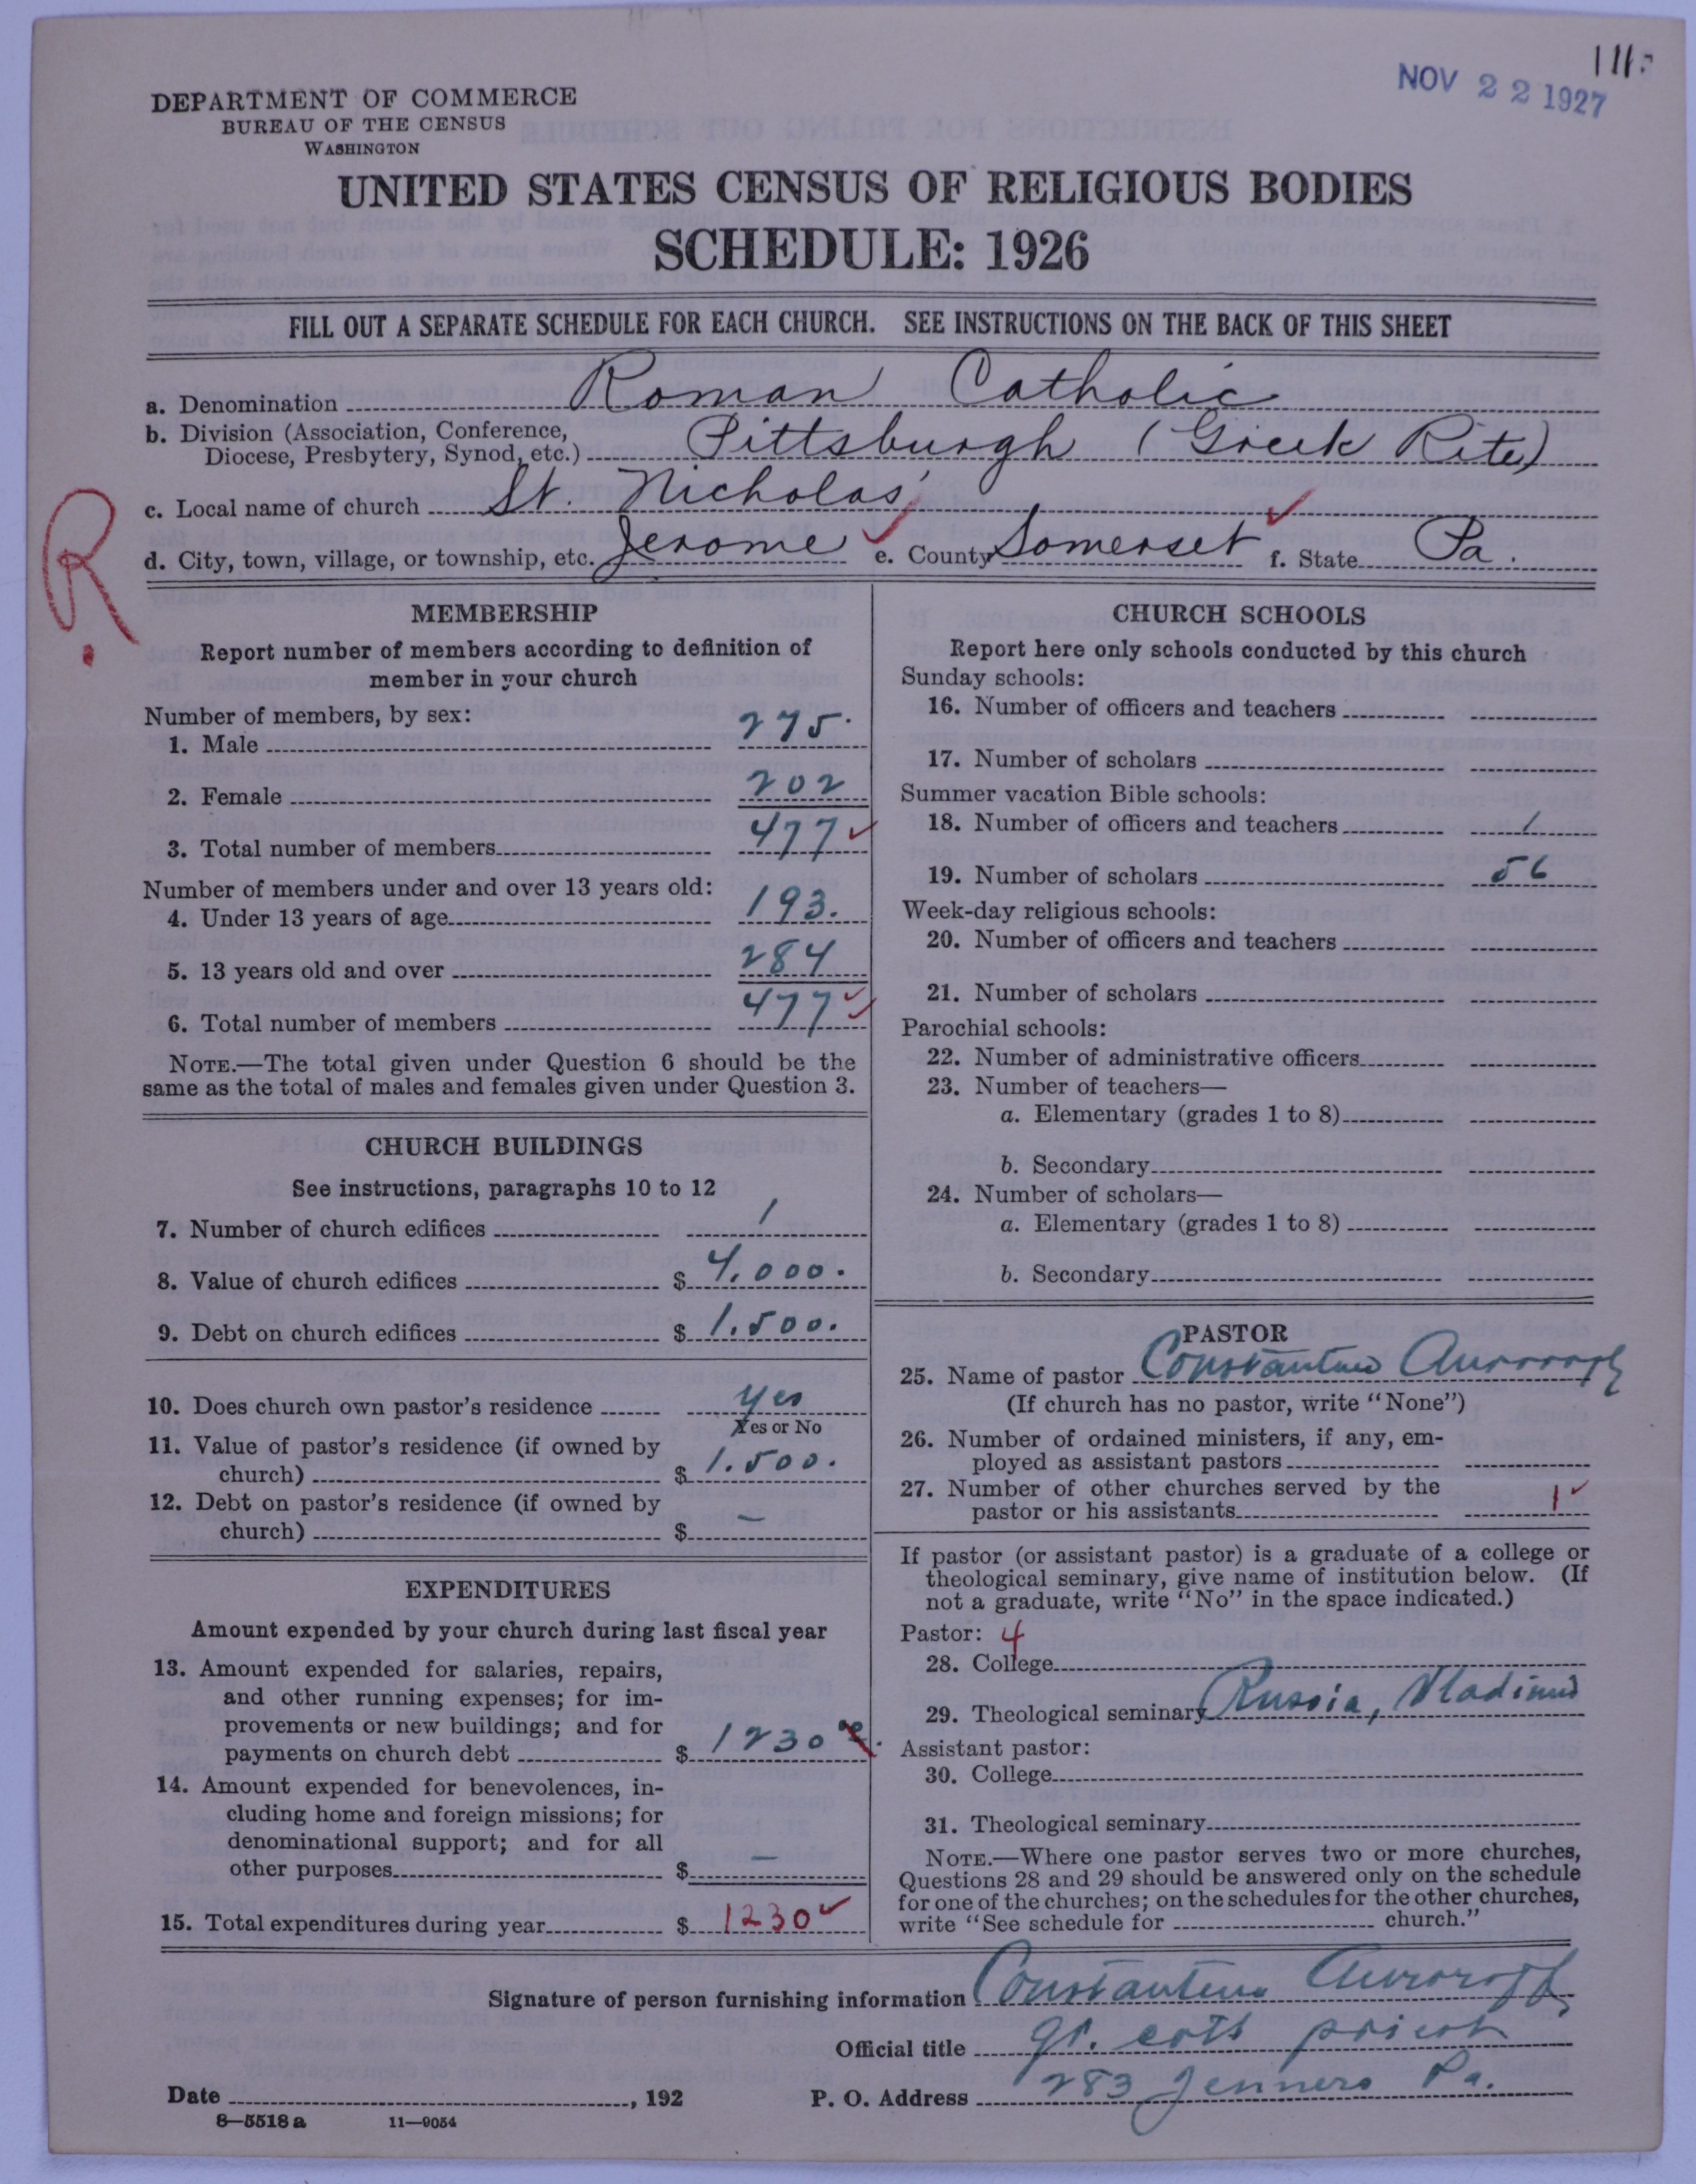 111
NOV 22 1927
DEPARTMENT OF COMMERCE
BUREAU OF THE CENSUS
WASHINGTON
UNITED STATES CENSUS OF RELIGIOUS BODIES
SCHEDULE: 1926
FILL OUT A SEPARATE SCHEDULE FOR EACH CHURCH. SEE INSTRUCTIONS ON THE BACK OF THIS SHEET
a. Denomination Roman Catholic
b. Division (Association, Conference,
Diocese, Presbytery, Synod, etc.) Pittsburgh (Greek Rite)
c. Local name of church St. Nicholas
d. City, town, village, or township, etc. Jerome e. County Somerset f. State Pa.
R.
MEMBERSHIP
Report number of members according to definition of
member in your church
Number of members, by sex:
1. Male 275.
2. Female 202
3. Total number of members 477 ✓
Number of members under and over 13 years old:
4. Under 13 years of age 193.
5. 13 years old and over 284
6. Total number of members 477 ✓
NOTE.—The total given under Question 6 should be the
same as the total of males and females given under Question 3.
CHURCH BUILDINGS
See instructions, paragraphs 10 to 12
7. Number of church edifices 1
8. Value of church edifices $ 4.000.
9. Debt on church edifices $ 1.500.
10. Does church own pastor's residence yes
Yes or No
11. Value of pastor's residence (if owned by
church) $ 1.500.
12. Debt on pastor's residence (if owned by
church) $ —
EXPENDITURES
Amount expended by your church during last fiscal year
13. Amount expended for salaries, repairs,
and other running expenses; for im-
provements or new buildings; and for
payments on church debt $ 1230
14. Amount expended for benevolences, in-
cluding home and foreign missions; for
denominational support; and for all
other purposes $ —
15. Total expenditures during year $ 1230 ✓
CHURCH SCHOOLS
Report here only schools conducted by this church
Sunday schools:
16. Number of officers and teachers
17. Number of scholars
Summer vacation Bible schools:
18. Number of officers and teachers 1
19. Number of scholars 56
Week-day religious schools:
20. Number of officers and teachers
21. Number of scholars
Parochial schools:
22. Number of administrative officers
23. Number of teachers—
a. Elementary (grades 1 to 8)
b. Secondary
24. Number of scholars—
a. Elementary (grades 1 to 8)
b. Secondary
PASTOR
25. Name of pastor Constantine
(If church has no pastor, write "None")
26. Number of ordained ministers, if any, em-
ployed as assistant pastors
27. Number of other churches served by the
pastor or his assistants 1 ✓
If pastor (or assistant pastor) is a graduate of a college or
theological seminary, give name of institution below. (If
not a graduate, write "No" in the space indicated.)
Pastor: 4
28. College
29. Theological seminary Russia, Vladimir
Assistant pastor:
30. College
31. Theological seminary
NOTE.—Where one pastor serves two or more churches,
Questions 28 and 29 should be answered only on the schedule
for one of the churches; on the schedules for the other churches,
write "See schedule for church."
Signature of person furnishing information Constantine
Official title gr. cath priest
Date , 192 P. O. Address 283 Jenners Pa.
8—5518 a 11—9054